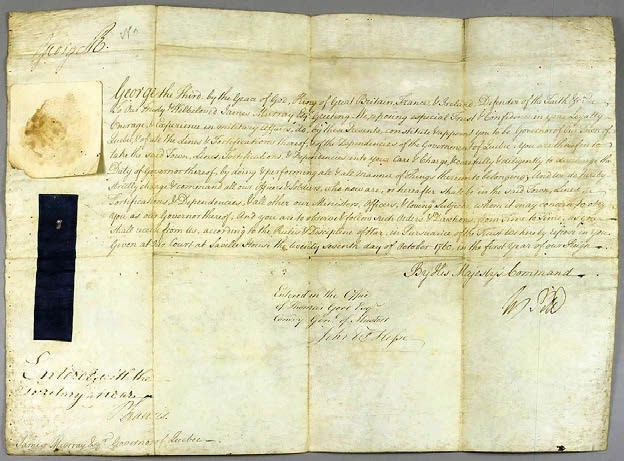 George R.
George the Third, by the Grace of God, King of Great Britain, France & Ireland, Defender of the Faith &ca To
Our Trusty & Welbeloved James Murray Esqr Greeting. We reposing especial Trust & Confidence in your Loyalty
Courage, & Experience in military Affairs, do, by these Presents, constitute & appoint you to be Governor of Our Town of
Quebec, & of all the Lines & Fortifications thereof, & of the Dependencies of the Government of Quebec. You are therefore to
take the said Town, Lines, Fortifications, & Dependencies into your Care & Charge, & carefully & diligently to discharge the
Duty of Governor thereof, by doing & performing all & all manner of Things thereunto belonging. And we do hereby
Strictly charge & command all our Officers & Soldiers, who now are, or hereafter shall be in the said Town, Lines,
Fortifications & Dependencies, & all other our Ministers, Officers, & loving Subjects whom it may concern to obey
you as our Governor thereof. And you are to observe & follow such Orders & Directions, from Time to Time, as you
Shall receive from us, according to the Rules & Discipline of War, in Pursuance of the Trust we hereby repose in you.
Given at Our Court at Saville House the twenty seventh day of October 1760. in the first Year of our Reign
By His Majesty's Command
W Pitt
Entered in the Office
of Thomas Gore Esqr
Comry Genl of Musters
John
Entered with the
Secretary at War
James Murray Esqr Governor of Quebec